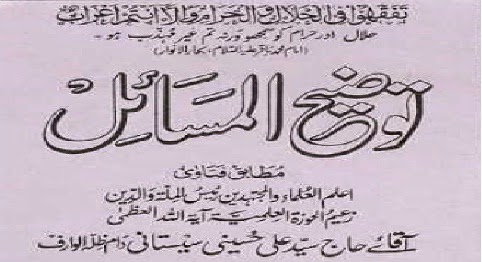 تفقهوا فی الحلال و الحرام والا انتم اعراب
حلال اور حرام کو سمجھو ورنہ تم غیر مہذب ہو ۔
(امام محمد باقر علیہ السلام، بحار الانوار)
توضیح المسائل
مطابق فتاوی
اعلم العلماء والمجتہدین رئیس الملۃ والدین
زعیم الحوزۃ العلمیۃ آیۃ اللہ العظمی
آقائے حاج سید علی حسینی سیستانی دام ظلہ الوارف